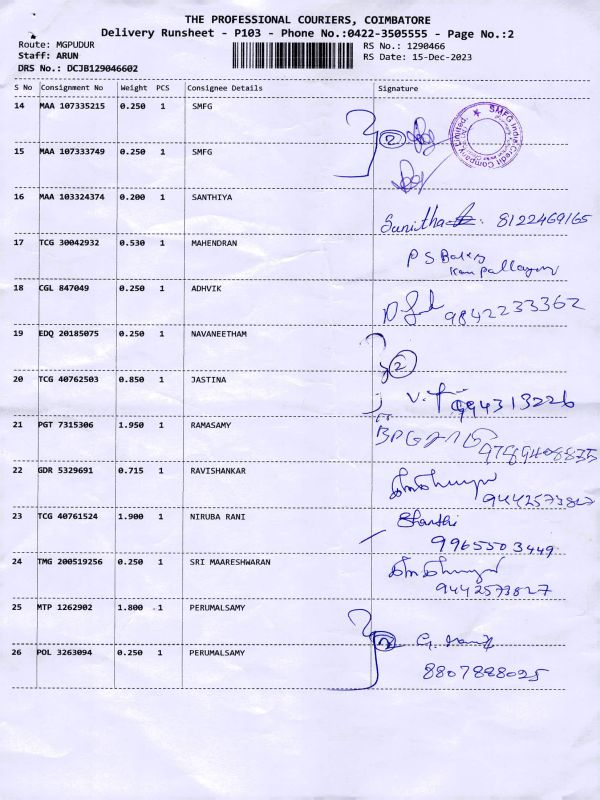 THE PROFESSIONAL COURIERS, COIMBATORE
Delivery Runsheet - P103 - Phone No.:0422-3505555 - Page No.:2
Route: MGPUDUR
RS No.: 1290466
Staff: ARUN
RS Date: 15-Dec-2023
DRS No.: DCJB129046602
S No Consignment No Weight PCS Consignee Details Signature
14 MAA 107335215 0.250 1 SMFG
2
SMFG India Credit Company Limited.
15 MAA 107333749 0.250 1 SMFG
16 MAA 103324374 0.200 1 SANTHIYA
Sunitha 8122469165
17 TCG 30042932 0.530 1 MAHENDRAN
P S Bakery
18 CGL 847049 0.250 1 ADHVIK
9842233362
19 EDQ 20185075 0.250 1 NAVANEETHAM
2
20 TCG 40762503 0.850 1 JASTINA
994313226
21 PGT 7315306 1.950 1 RAMASAMY
22 GDR 5329691 0.715 1 RAVISHANKAR
9442573827
23 TCG 40761524 1.900 1 NIRUBA RANI
Bharathi
9965503449
24 TMG 200519256 0.250 1 SRI MAARESHWARAN
9442573827
25 MTP 1262902 1.800 1 PERUMALSAMY
2
26 POL 3263094 0.250 1 PERUMALSAMY
8807888025